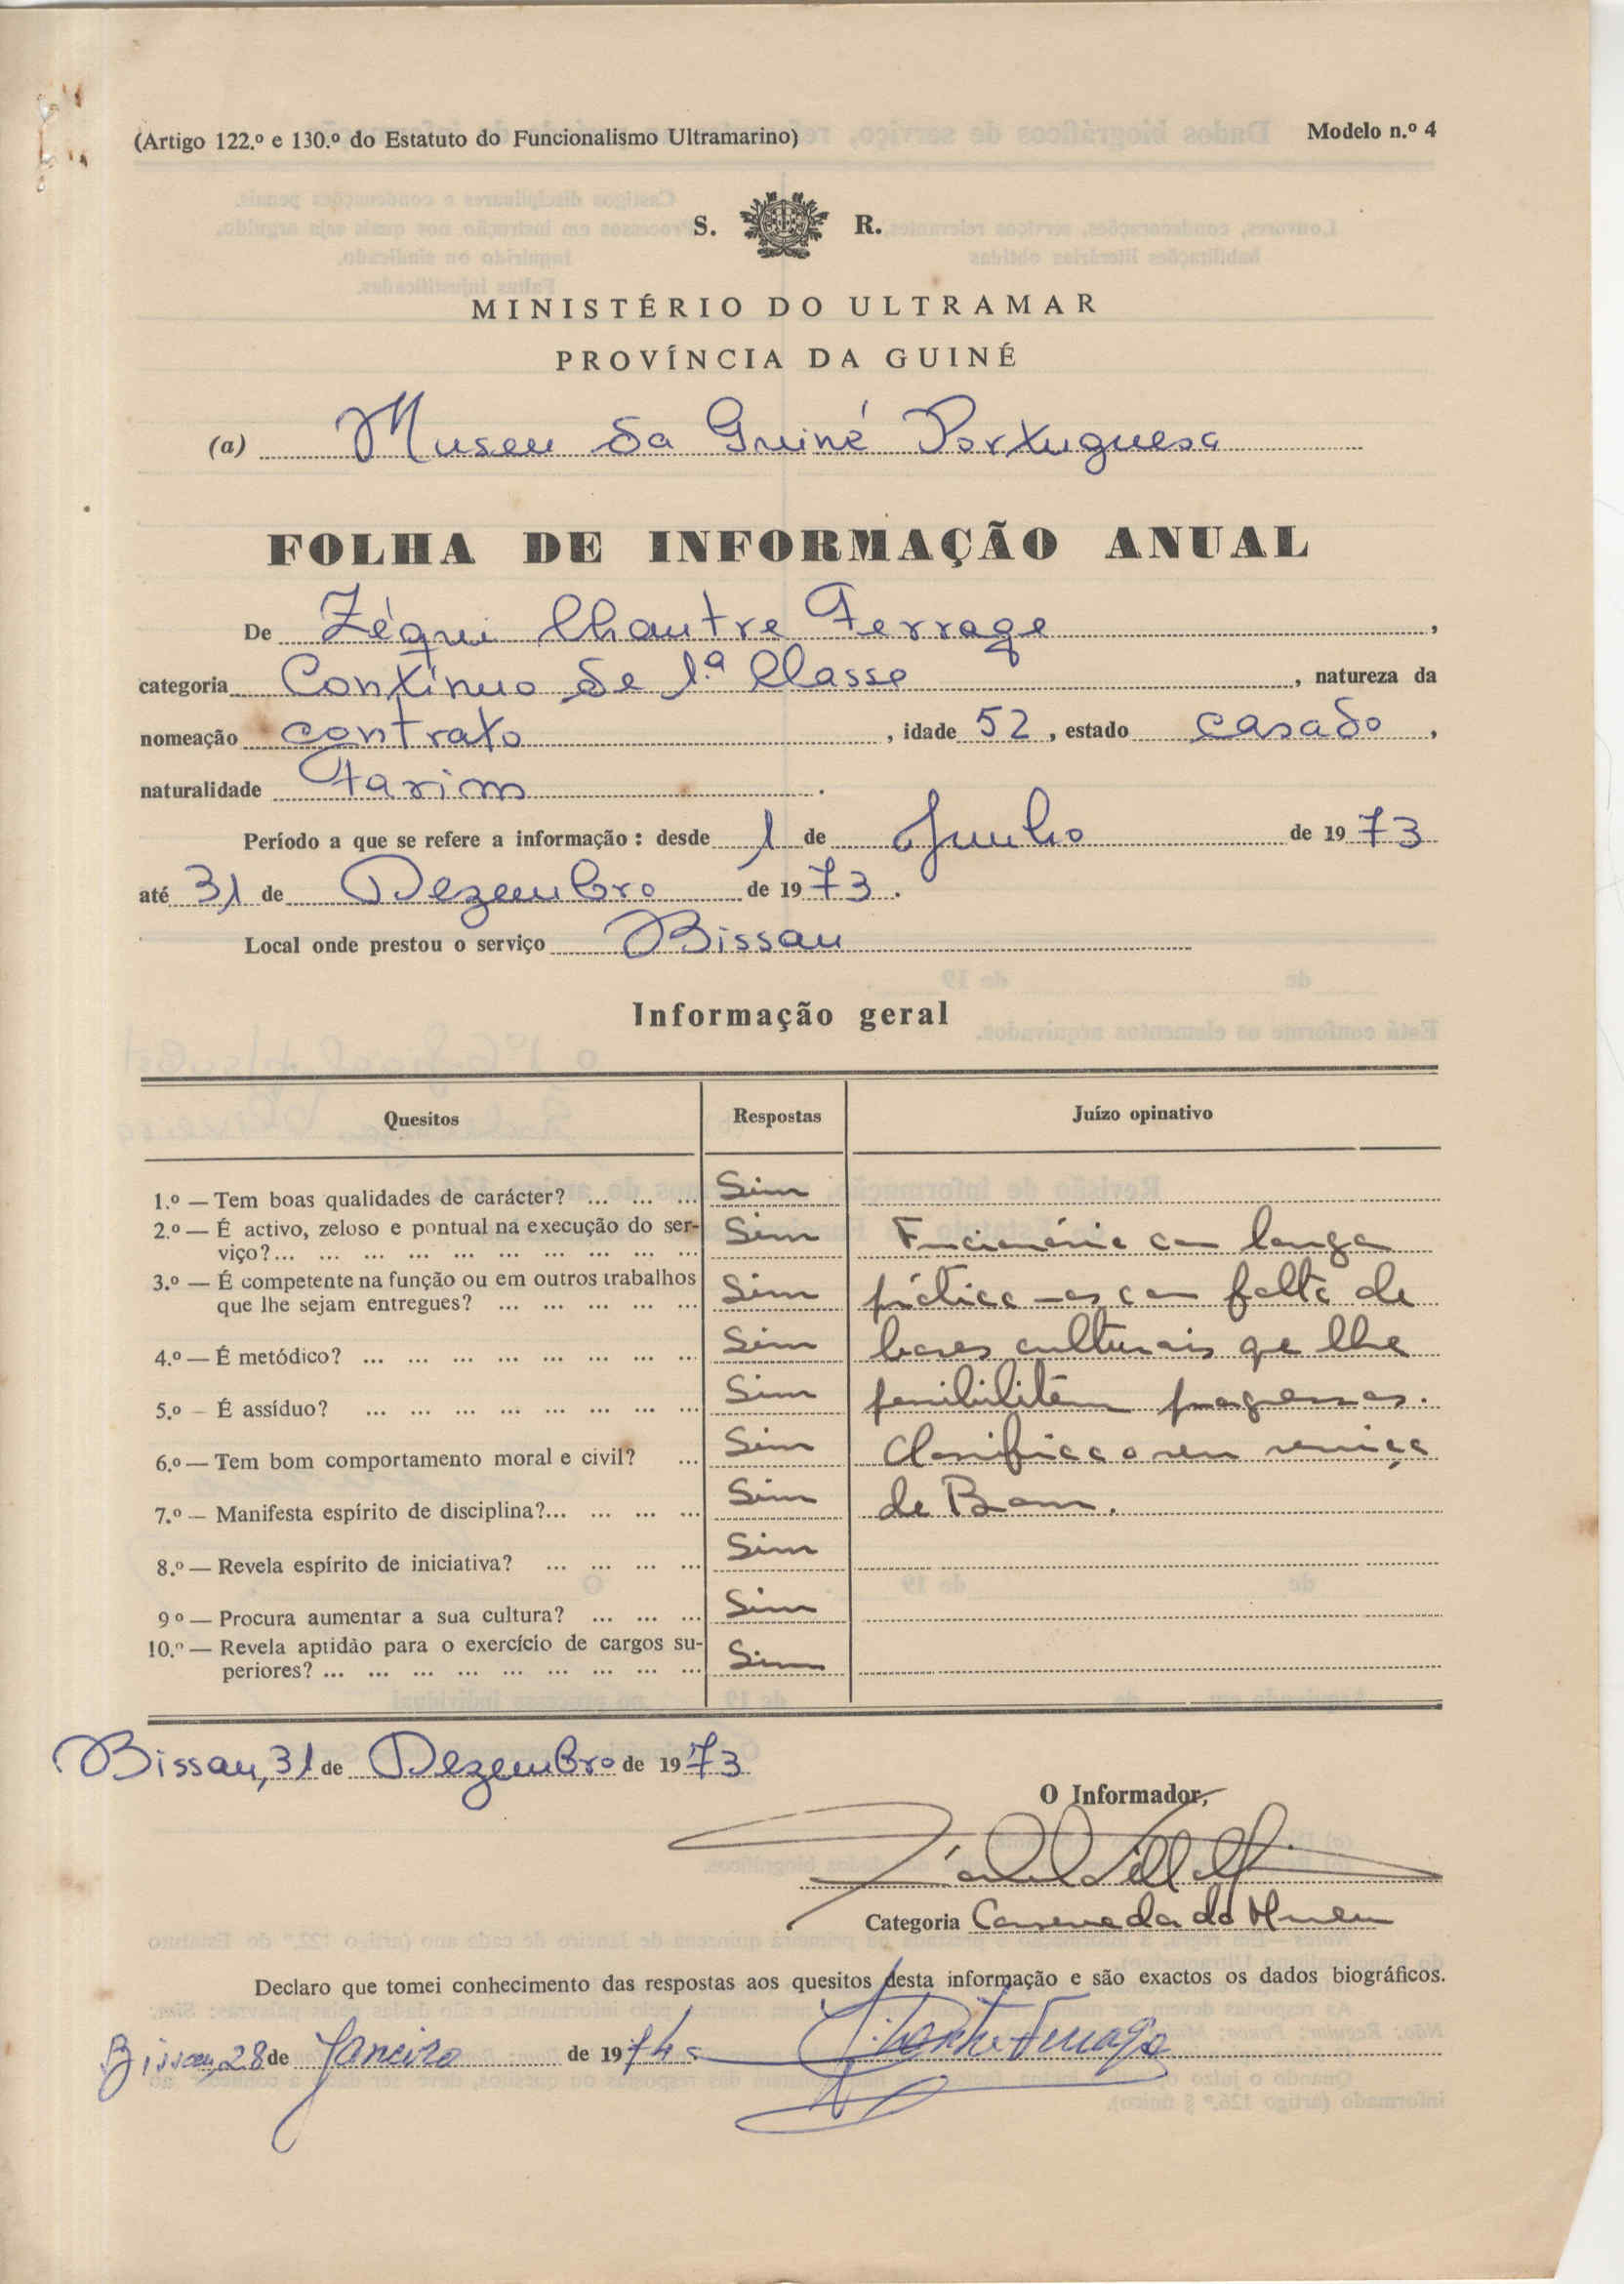 (Artigo 122.º e 130.º do Estatuto do Funcionalismo Ultramarino) Modelo n.º 4
S. R.
MINISTÉRIO DO ULTRAMAR
PROVÍNCIA DA GUINÉ
(a) Museu da Guiné Portuguesa
FOLHA DE INFORMAÇÃO ANUAL
De Zéqui Chautre Ferrage,
categoria Contínuo de 1.ª Classe, natureza da
nomeação contrato, idade 52, estado casado,
naturalidade Farim.
Período a que se refere a informação: desde 1 de Junho de 1973
até 31 de Dezembro de 1973.
Local onde prestou o serviço Bissau
Informação geral
Quesitos Respostas Juízo opinativo
1.º — Tem boas qualidades de carácter? ... ... ... Sim
2.º — É activo, zeloso e pontual na execução do ser- Sim Funcionário com longa
viço?... ... ... ... ... ... ... ... ... ...
3.º — É competente na função ou em outros trabalhos Sim prática mas com falta de
que lhe sejam entregues? ... ... ... ... ...
4.º — É metódico? ... ... ... ... ... ... ... ... Sim bases culturais que lhe
5.º – É assíduo? ... ... ... ... ... ... ... ... Sim possibilitem progressos.
6.º — Tem bom comportamento moral e civil? ... Sim Classifico o seu serviço
7.º — Manifesta espírito de disciplina?... ... ... ... Sim de Bom.
8.º — Revela espírito de iniciativa? ... ... ... ... Sim
9º — Procura aumentar a sua cultura? ... ... ... Sim
10.º — Revela aptidão para o exercício de cargos su- Sim
periores? ... ... ... ... ... ... ... ... ...
Bissau, 31 de Dezembro de 1973
O Informador,
Categoria Conservador do Museu
Declaro que tomei conhecimento das respostas aos quesitos desta informação e são exactos os dados biográficos.
Bissau, 28 de Janeiro de 1974